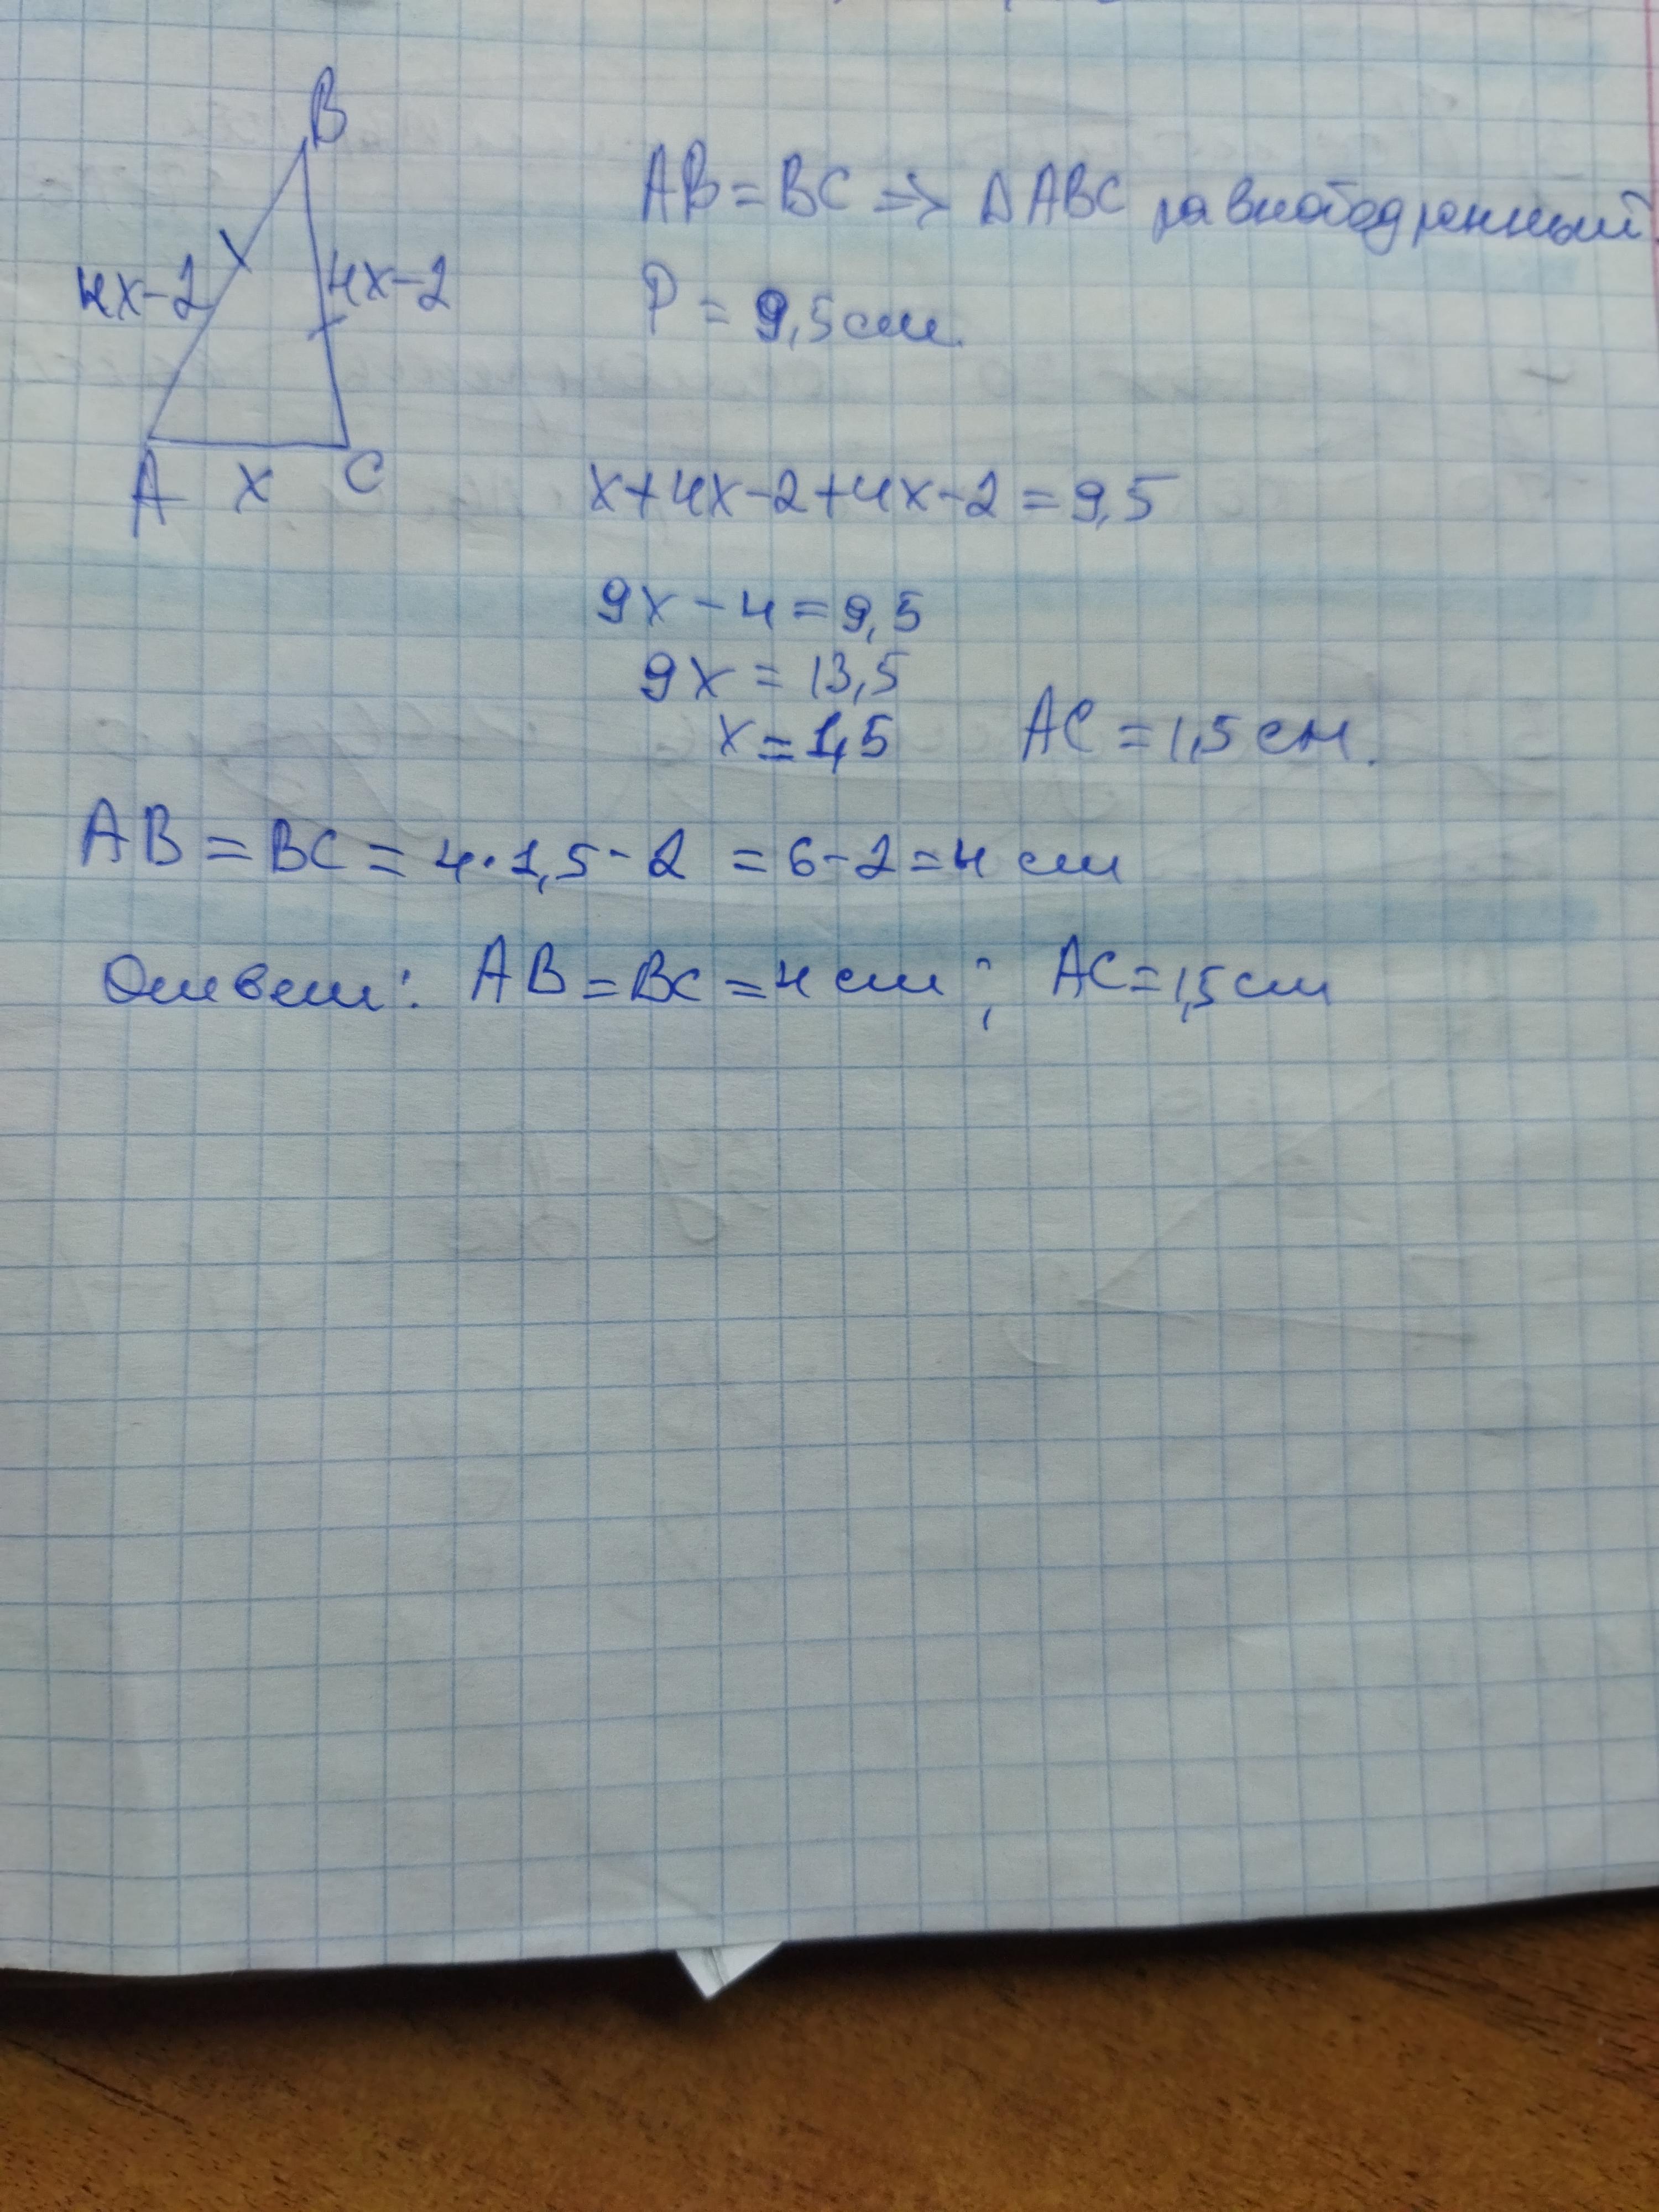 B
AB = BC => Δ ABC равнобедренный
4x-2
4x-2
P = 9,5 см.
A x C
x+4x-2+4x-2 = 9,5
9x - 4 = 9,5
9x = 13,5
x = 1,5 AC = 1,5 см.
AB = BC = 4·1,5 - 2 = 6-2 = 4 см
Ответ: AB = BC = 4 см; AC = 1,5 см